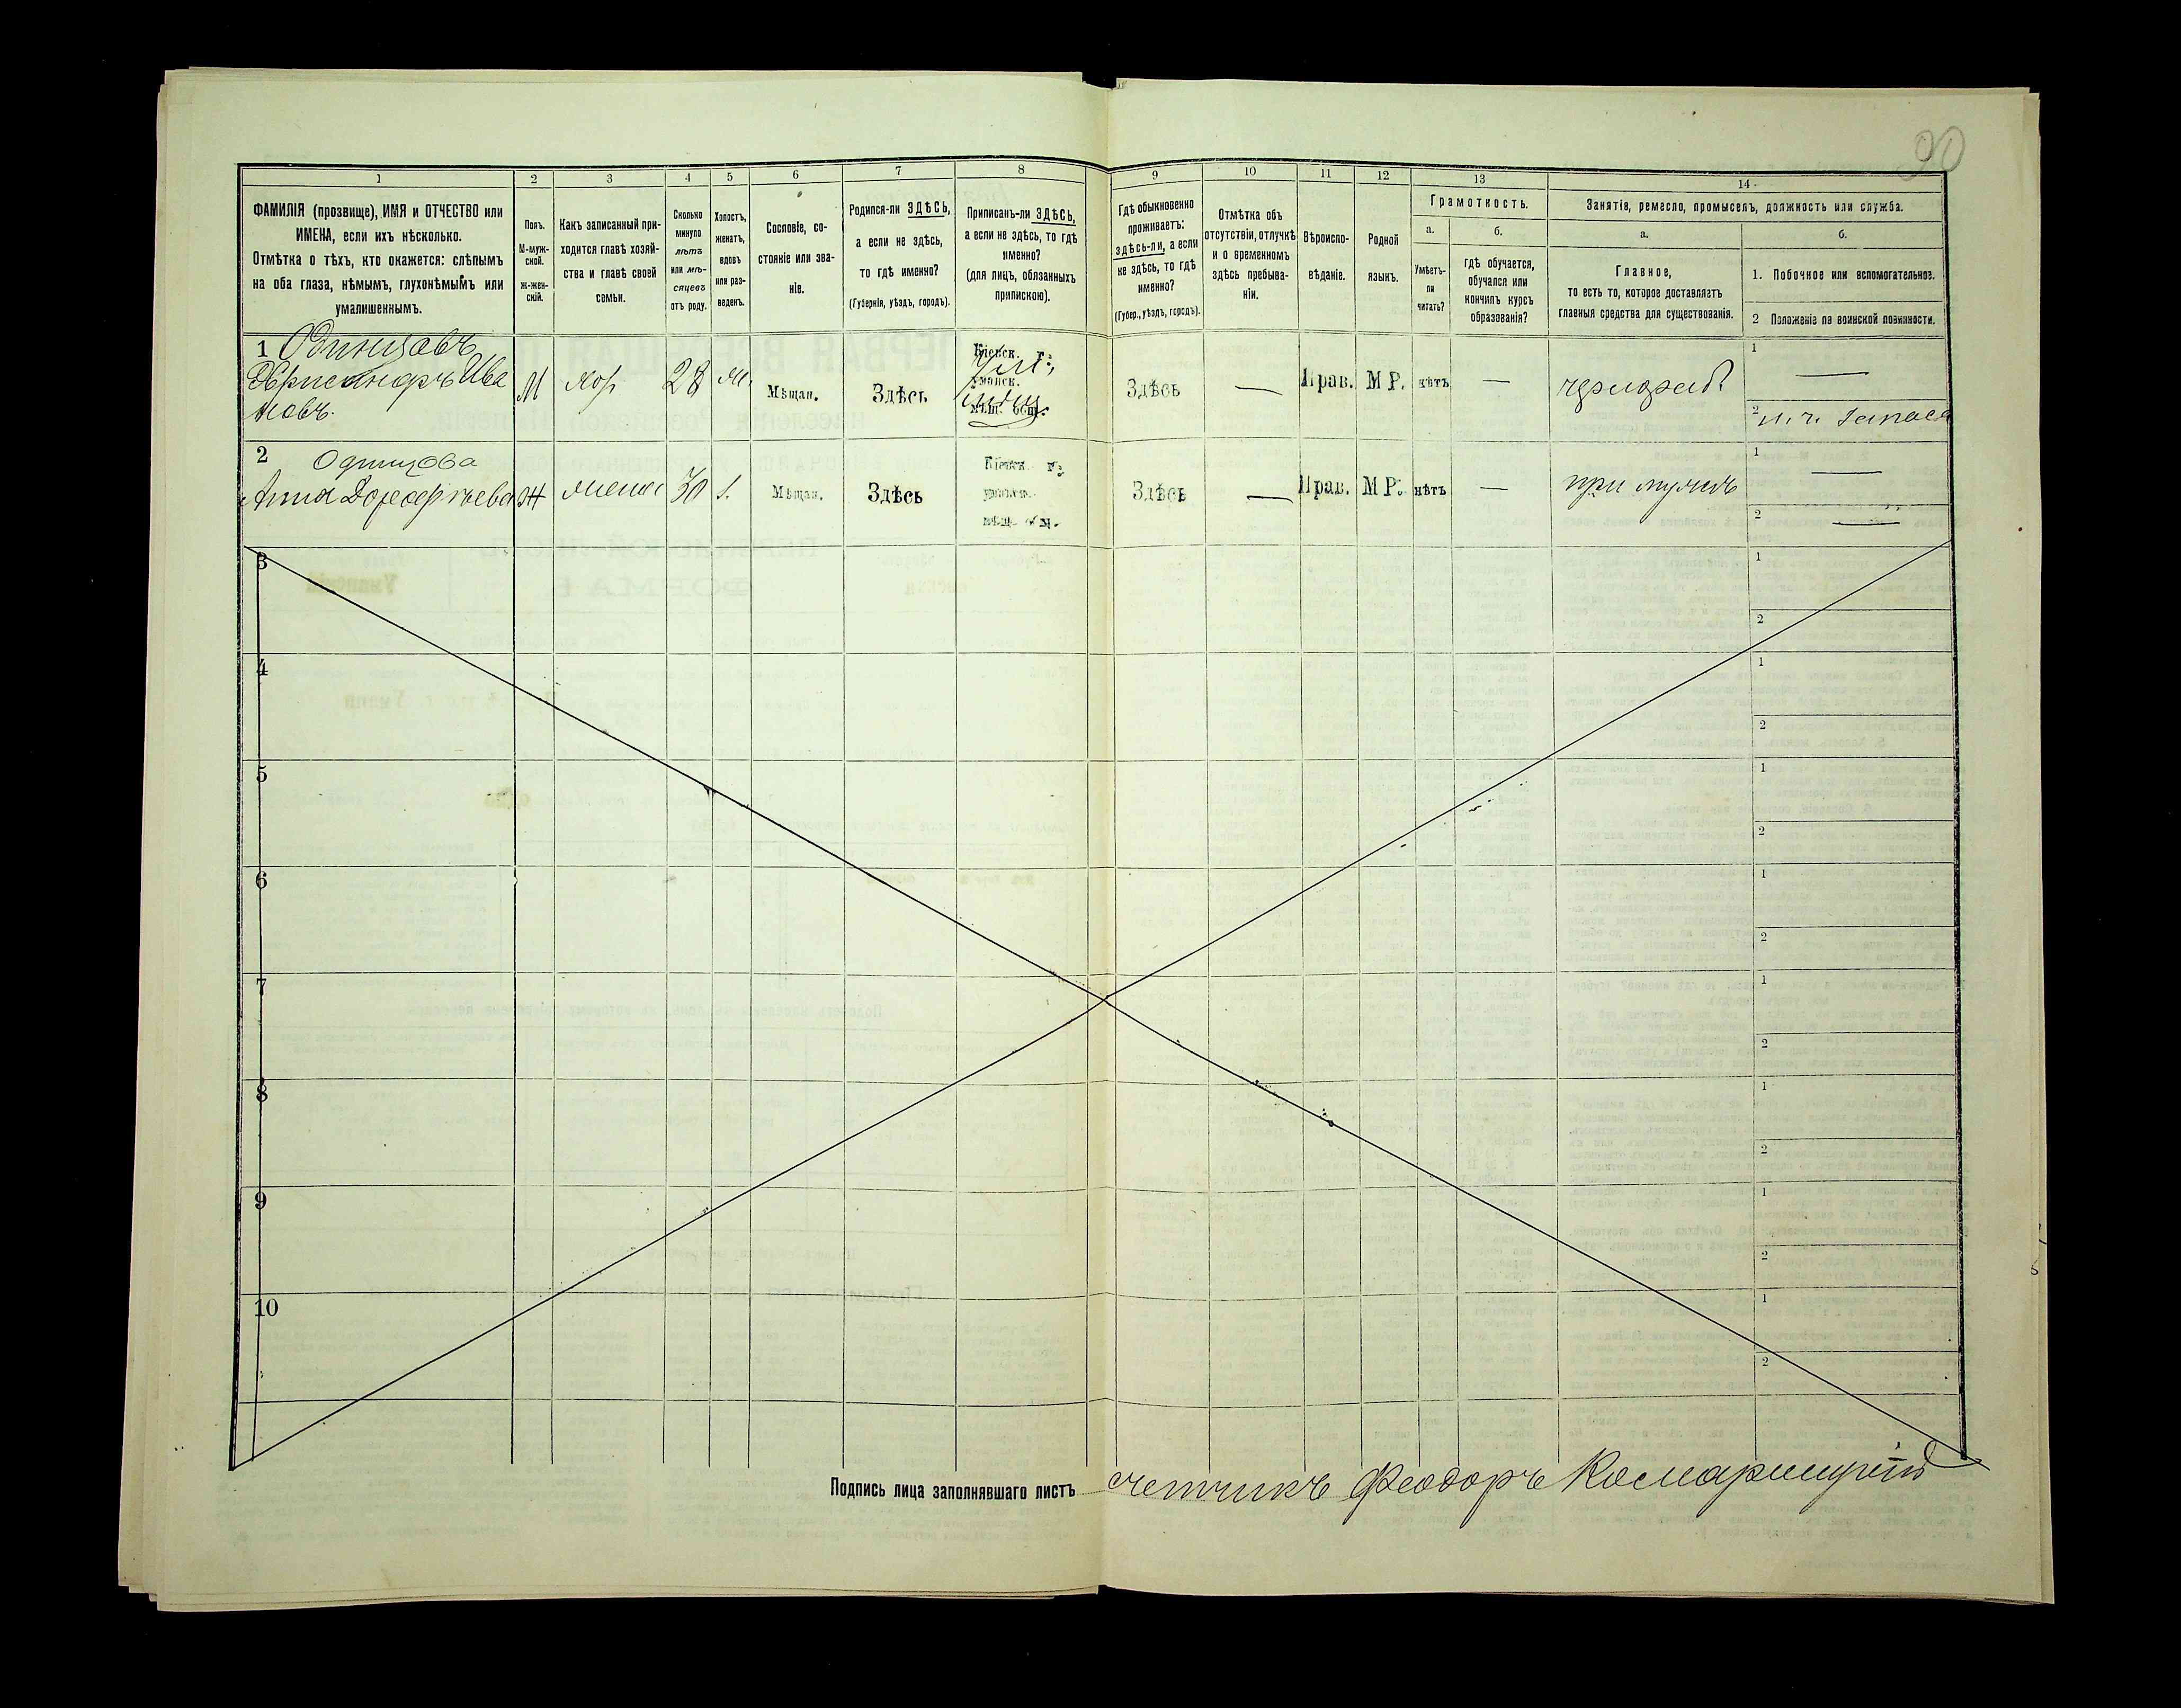 90
1
2
3
4
5
6
7
8
9
10
11
12
13
14
ФАМИЛІЯ (прозвище), ИМЯ и ОТЧЕСТВО или
ИМЕНА, если ихъ нѣсколько.
Отмѣтка о тѣхъ, кто окажется: слѣпымъ
на оба глаза, нѣмымъ, глухонѣмымъ или
умалишеннымъ.
Полъ.
М-муж-
ской.
Ж-жен-
скій.
Какъ записанный при-
ходится главѣ хозяй-
ства и главѣ своей
семьи.
Сколько
минуло
лѣтъ
или мѣ-
сяцевъ
отъ роду.
Холостъ,
женатъ,
вдовъ
или раз-
веденъ.
Сословіе, со-
стояніе или зва-
ніе.
Родился-ли ЗДѢСЬ,
а если не здѣсь,
то гдѣ именно?
(Губернія, уѣздъ, городъ).
Приписанъ-ли ЗДѢСЬ,
а если не здѣсь, то гдѣ
именно?
(для лицъ, обязанныхъ
припискою).
Гдѣ обыкновенно
проживаетъ:
здѣсь-ли, а если
не здѣсь, то гдѣ
именно?
(Губер., уѣздъ, городъ).
Отмѣтка объ
отсутствіи, отлучкѣ
и о временномъ
здѣсь пребыва-
ніи.
Вѣроиспо-
вѣданіе.
Родной
языкъ.
Грамотность.
а.
Умѣетъ-
ли
читать?
б.
гдѣ обучается,
обучался или
кончилъ курсъ
образованія?
Занятіе, ремесло, промыселъ, должность или служба.
а.
Главное,
то есть то, которое доставляетъ
главныя средства для существованія.
б.
1. Побочное или вспомогательное.
2 Положеніе по воинской повинности.
1 Одинцовъ
Ива
новъ.
М
28
Мѣщан.
Здѣсь
Кіевск. г.
Уманск.
мѣщ. общ.
Здѣсь
—
Прав.
М Р.
нѣтъ
—
1 —
2
2 Одинцова
Анна
Ж
30
Мѣщан.
Здѣсь
Кіевск. г.
Здѣсь
—
Прав.
М Р.
нѣтъ
—
при мужѣ
1 —
2 —
3
1
2
4
1
2
5
1
2
6
1
2
7
1
2
8
1
2
9
1
2
10
1
2
Подпись лица заполнявшаго листъ счетчикъ Феодоръ